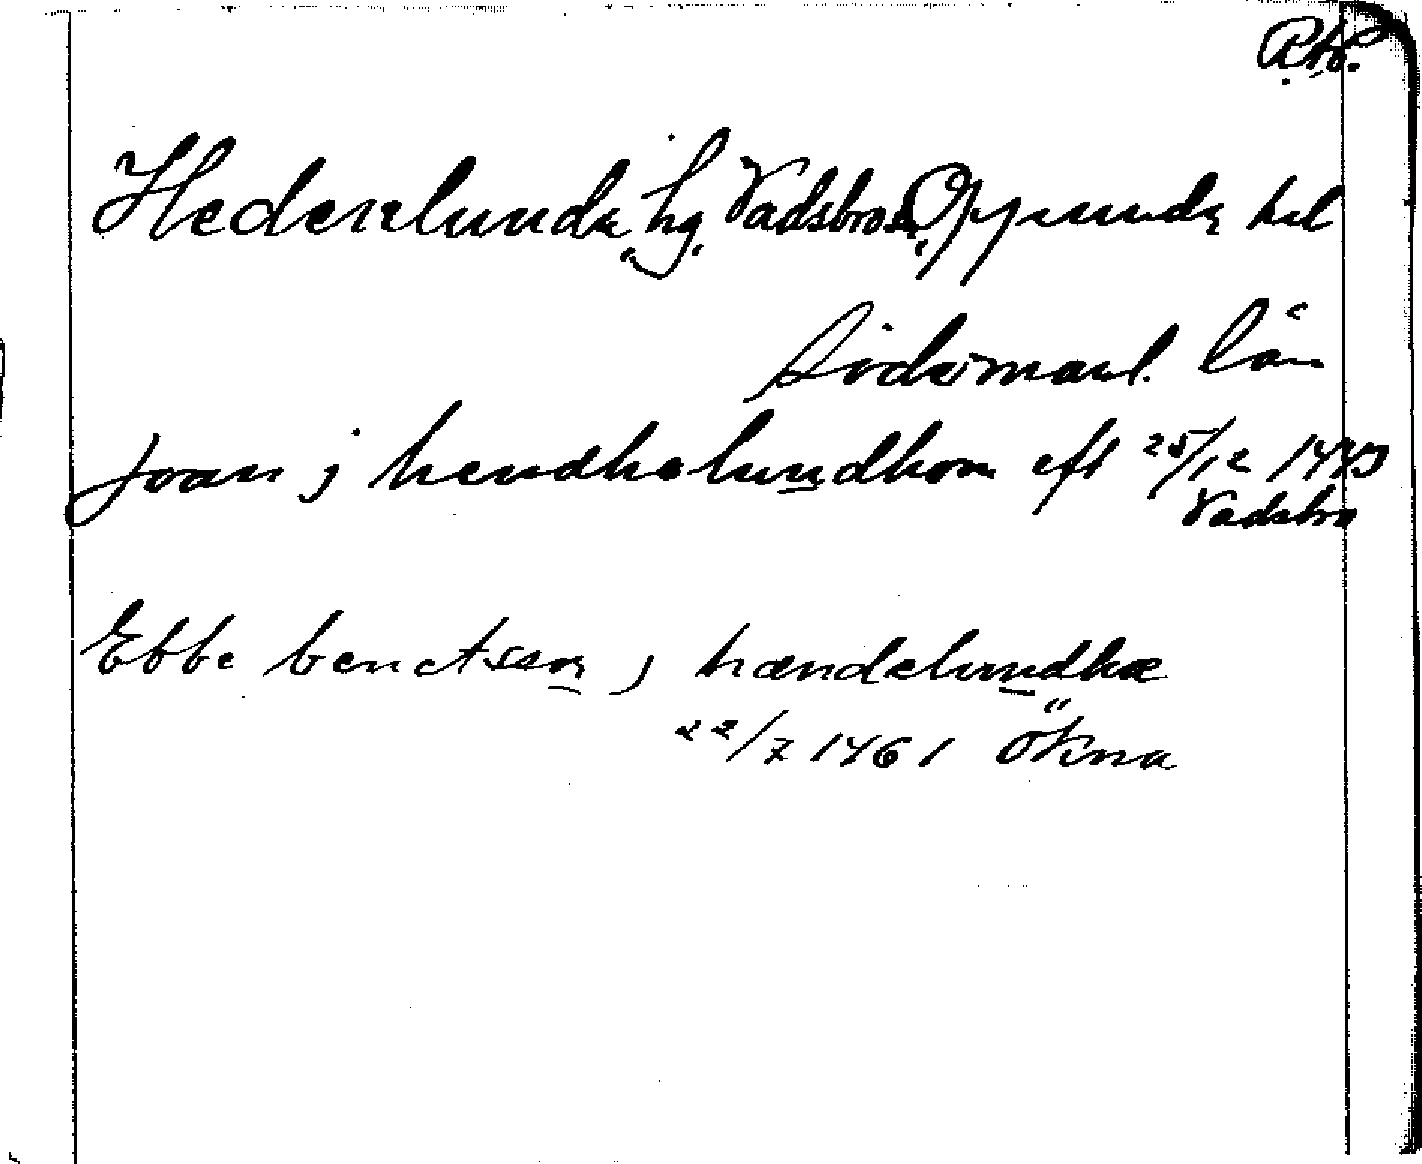 Hedenlunda, hg, Vadsbro sn, Oppunda hd
Södermanl. län
Joan j hendhelundhom eft 25/12 1443
Vadsbro
Ebbe benctsson j hændelundhæ
22/7 1461 Ökna